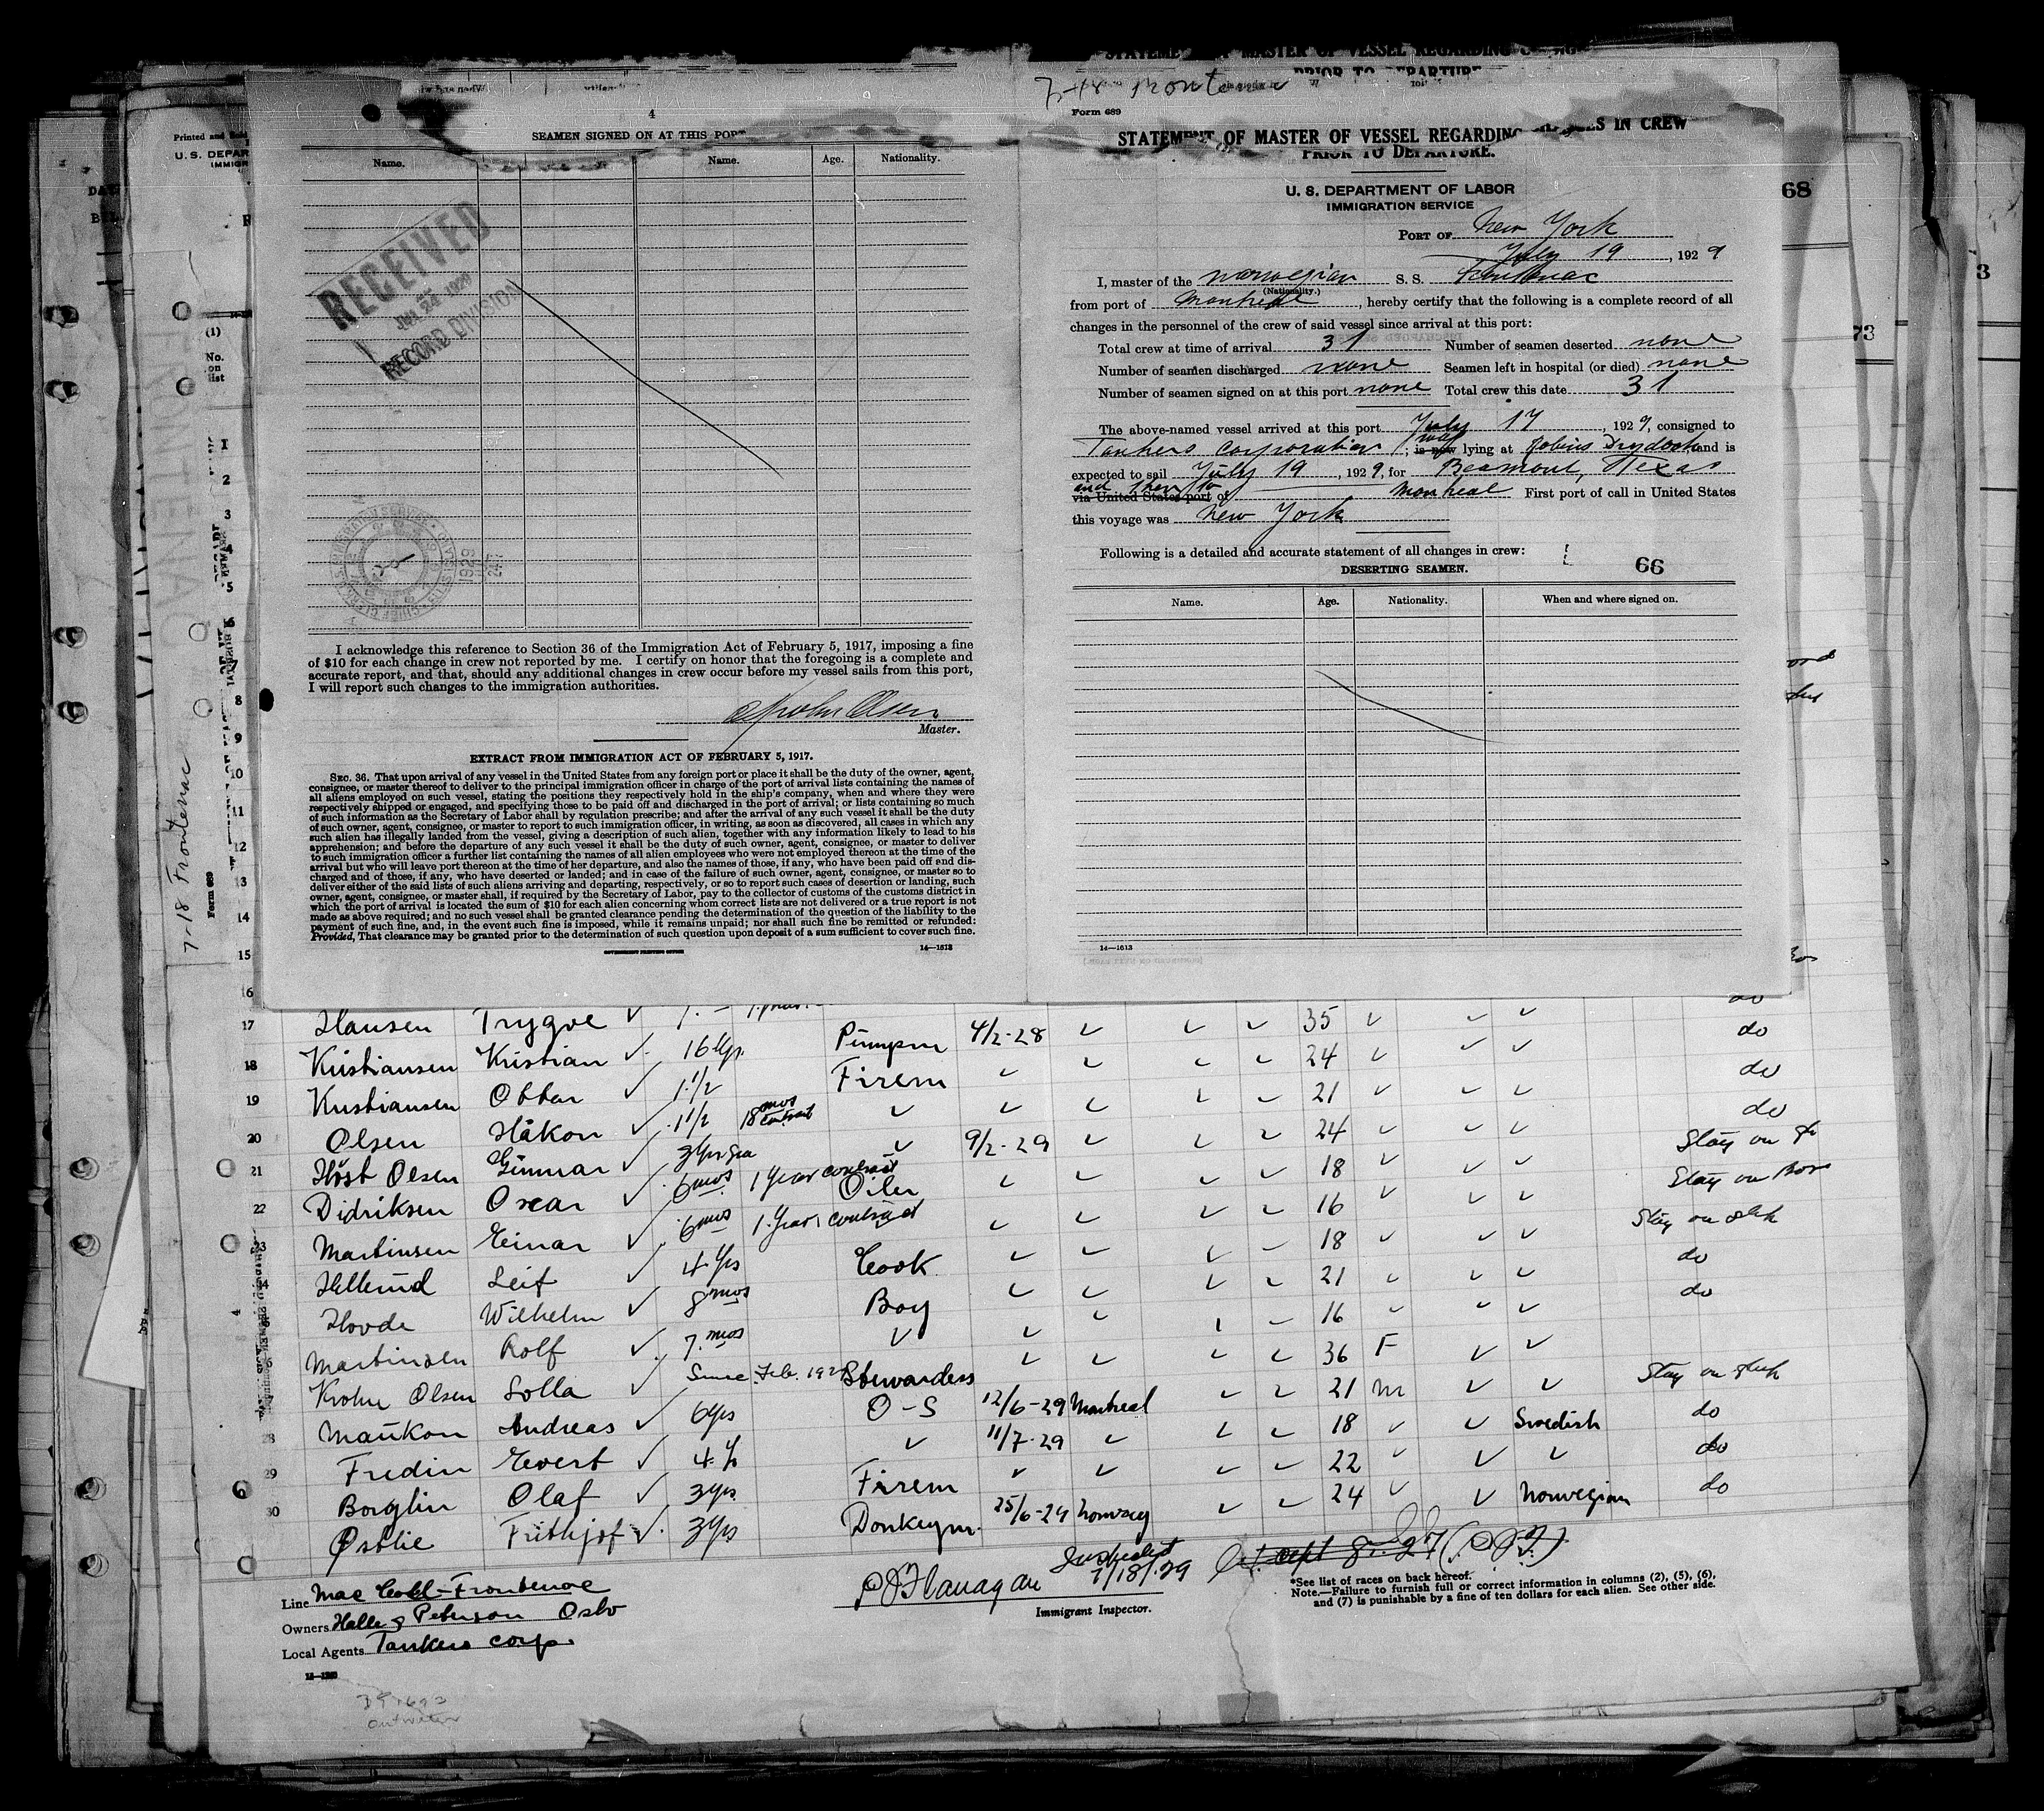 STATEME MASTER OF VESSEL REGARDING
PRIOR TO DEPARTURE
4
SEAMEN SIGNED ON AT THIS PORT
Name. Name. Age. Nationality.
RECEIVED
JUL 24 1929
RECORD DIVISION
I acknowledge this reference to Section 36 of the Immigration Act of February 5, 1917, imposing a fine
of $10 for each change in crew not reported by me. I certify on honor that the foregoing is a complete and
accurate report, and that, should any additional changes in crew occur before my vessel sails from this port,
I will report such changes to the immigration authorities.
Olsen
Master.
EXTRACT FROM IMMIGRATION ACT OF FEBRUARY 5, 1917.
SEC. 36. That upon arrival of any vessel in the United States from any foreign port or place it shall be the duty of the owner, agent,
consignee, or master thereof to deliver to the principal immigration officer in charge of the port of arrival lists containing the names of
all aliens employed on such vessel, stating the positions they respectively hold in the ship's company, when and where they were
respectively shipped or engaged, and specifying those to be paid off and discharged in the port of arrival; or lists containing so much
of such information as the Secretary of Labor shall by regulation prescribe; and after the arrival of any such vessel it shall be the duty
of such owner, agent, consignee, or master to report to such immigration officer, in writing, as soon as discovered, all cases in which any
such alien has illegally landed from the vessel, giving a description of such alien, together with any information likely to lead to his
apprehension; and before the departure of any such vessel it shall be the duty of such owner, agent, consignee, or master to deliver
to such immigration officer a further list containing the names of all alien employees who were not employed thereon at the time of the
arrival but who will leave port thereon at the time of her departure, and also the names of those, if any, who have been paid off and dis-
charged and of those, if any, who have deserted or landed; and in case of the failure of such owner, agent, consignee, or master so to
deliver either of the said lists of such aliens arriving and departing, respectively, or so to report such cases of desertion or landing, such
owner, agent, consignee, or master shall, if required by the Secretary of Labor, pay to the collector of customs of the customs district in
which the port of arrival is located the sum of $10 for each alien concerning whom correct lists are not delivered or a true report is not
made as above required; and no such vessel shall be granted clearance pending the determination of the question of the liability to the
payment of such fine, and, in the event such fine is imposed, while it remains unpaid; nor shall such fine be remitted or refunded:
Provided, That clearance may be granted prior to the determination of such question upon deposit of a sum sufficient to cover such fine.
GOVERNMENT PRINTING OFFICE 14—1613
Form 689
STATEMENT OF MASTER OF VESSEL REGARDING CHANGES IN CREW
PRIOR TO DEPARTURE.
U. S. DEPARTMENT OF LABOR
IMMIGRATION SERVICE
PORT OF New York
July 19, 1929
I, master of the norwegian S. S. Frontenac
(Nationality.)
from port of Montreal, hereby certify that the following is a complete record of all
changes in the personnel of the crew of said vessel since arrival at this port:
Total crew at time of arrival 31 Number of seamen deserted none
Number of seamen discharged none Seamen left in hospital (or died) none
Number of seamen signed on at this port none Total crew this date 31
The above-named vessel arrived at this port July 17, 1929, consigned to
Tankers Corporation; is now was lying at Robins Drydock and is
expected to sail July 19, 1929, for Beamont, Texas
and then to
via United States port of Montreal First port of call in United States
this voyage was New York
Following is a detailed and accurate statement of all changes in crew:
66
DESERTING SEAMEN.
Name. Age. Nationality. When and where signed on.
14—1613
68
73
3
Printed and
U. S. DEPAR
IMMIGR
(1)
No.
on
list
1
2
3
4
5
6
7
8
9
10
11
12
13
14
15
16
7-18 Frontenac
Form 689
17 Hansen Trygve ✓ 35 ✓ ✓ ✓ do
18 Kristiansen Kristian ✓ 16 yrs. Pumpm 4/2-28 24 do
19 Kristiansen Ottar ✓ 1 1/2 Firem 21 do
20 Olsen Håkon ✓ 1 1/2 18 mos contract 24 do
21 Høst Olsen Gunnar ✓ 3 yrs sea 9/2-29 18 Stay on
22 Didriksen Oscar ✓ 6 mos 1 Year contract Oiler 16 Stay on
23 Martinsen Einar ✓ 6 mos 1 Year contract 18 Stay on
Hellerud Leif ✓ 4 Yrs Cook 21 do
Hovde Wilhelm ✓ 8 mos Boy 16 do
Martinsen Rolf ✓ 7 mos ✓
Krohn Olsen Solla ✓ Since Feb. Stewardess 36 F
28 Maukon Andreas ✓ 6 yrs O-S 12/6-29 Montreal 21 m Stay on
29 Fredin Evert ✓ 4 y ✓ 11/7-29 ✓ 18 ✓ ✓ Swedish do
Borglin Olaf ✓ 3 yrs Firem 22 do
30 Østlie Frithjof ✓ 3 yrs Donkeym. 25/6-29 Norway 24 Norwegian do
Line Mac Coll-Frontenac
Owners Halle & Peterson Oslo
Local Agents Tankers Corp.
Inspected
7/18/29
Flanagan
Immigrant Inspector.
*See list of races on back hereof.
Note.—Failure to furnish full or correct information in columns (2), (5), (6),
and (7) is punishable by a fine of ten dollars for each alien. See other side.